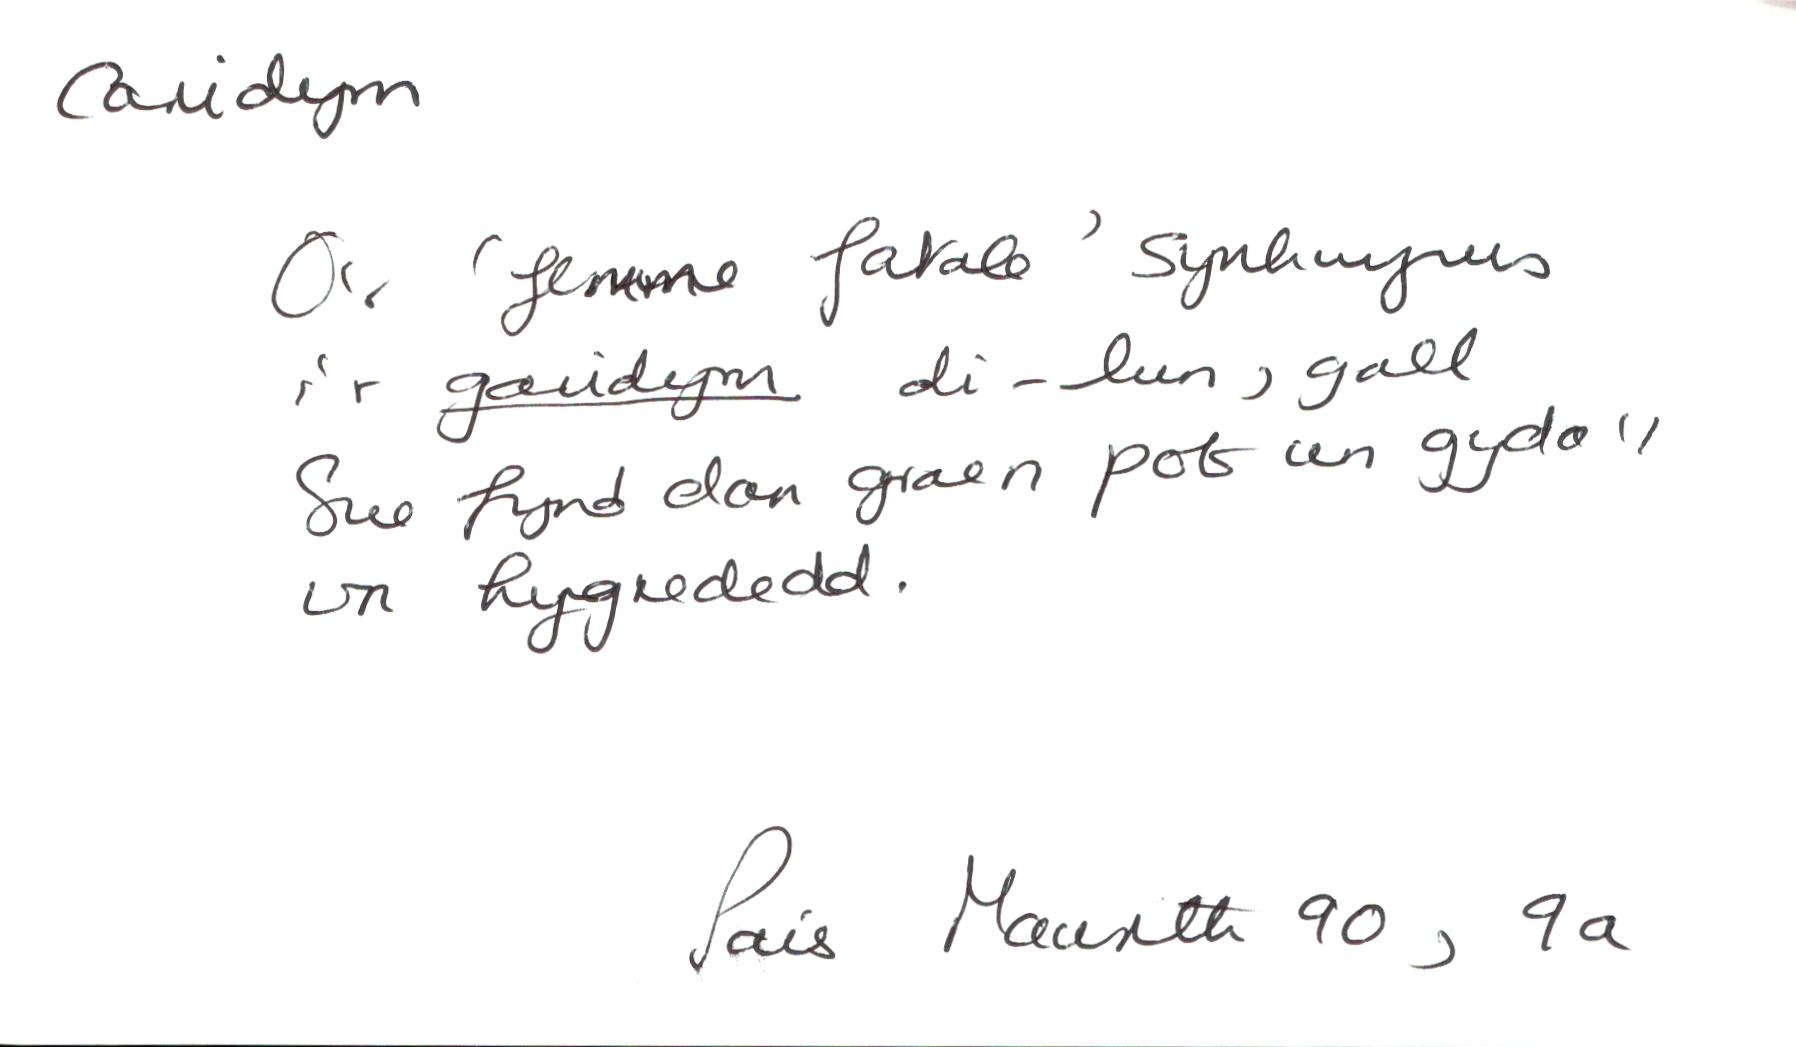 Caridym
O'r 'femme fatale' synhwyrus
i'r garidym di-lun, gall
Sue fynd dan groen pob un gyda'i
un hygrededd.
Pais Mawrth 90, 9a